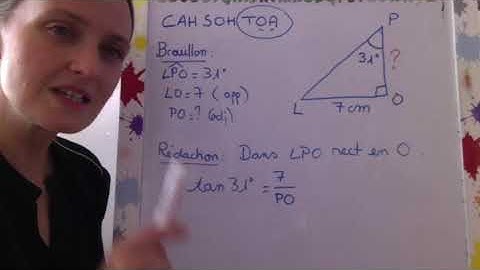 CAH SOH TOA
Brouillon :
LPO = 31°
LO = 7 (opp)
PO = ? (adj)
P
31°
?
L
7 cm
O
Rédaction : Dans LPO rect en O.
tan 31° = 7/PO